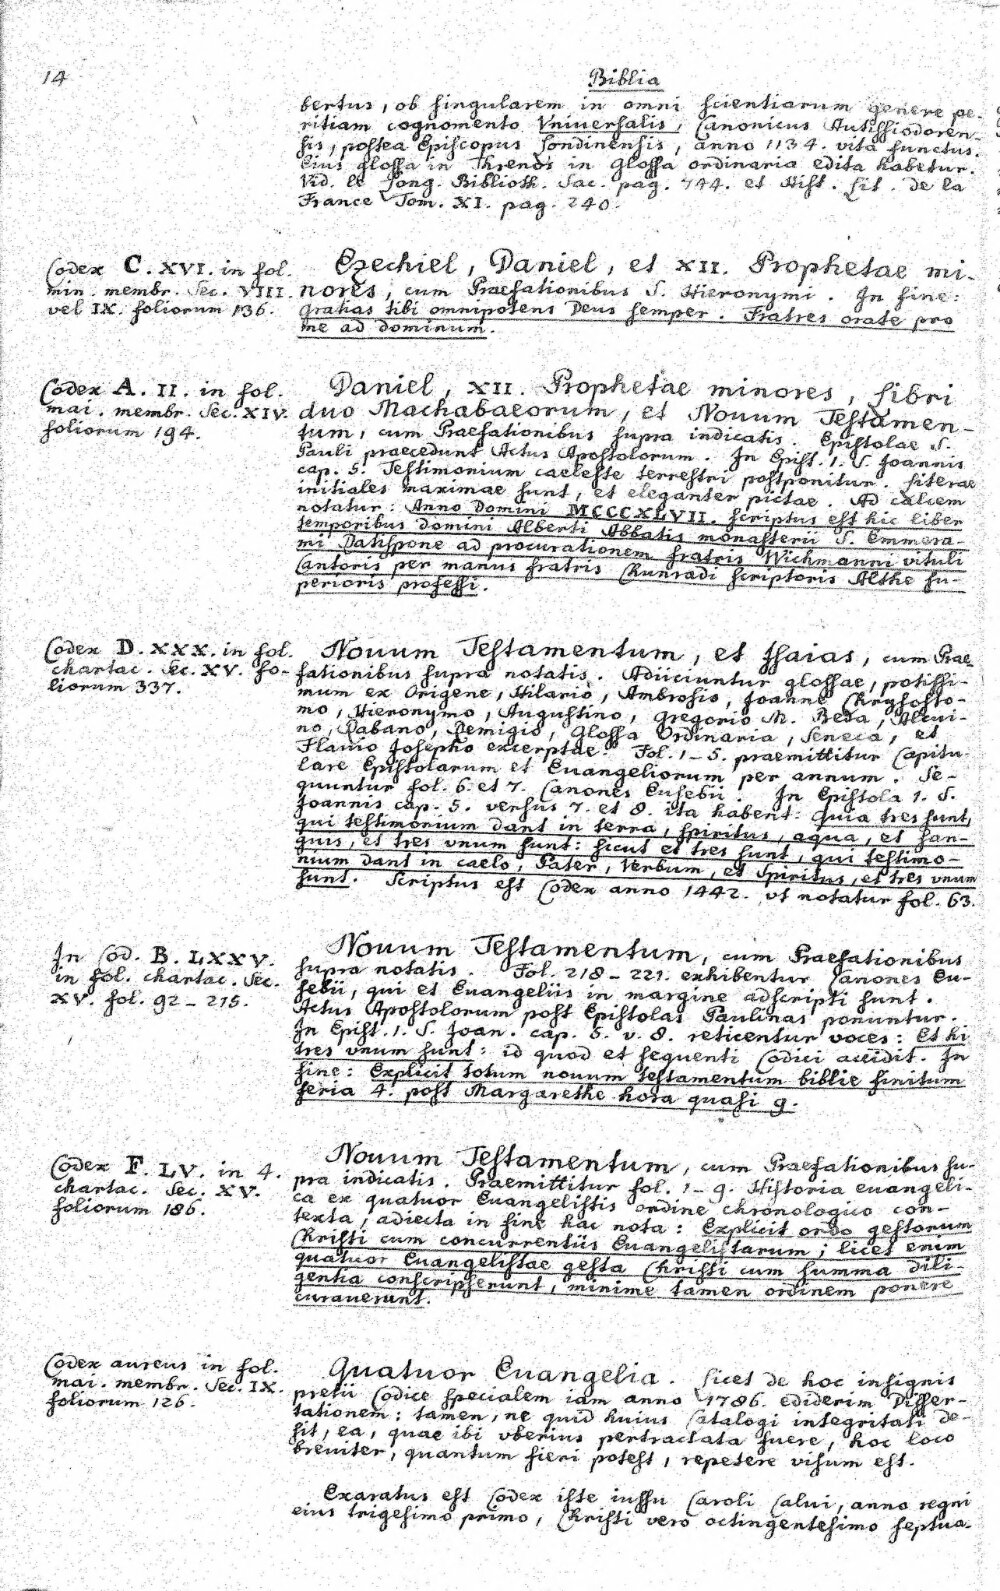 14
Biblia
bertus, ob singularem in omni scientiarum genere pe-
ritiam cognomento Vniuersalis, Canonicus Autissiodoren-
sis, postea Episcopus Londinensis, anno 1134. vita functus.
Eius glossa in Threnos in Glossa ordinaria edita habetur.
Vid. le Jong. Biblioth. Sac. pag. 744. et Hist. Lit. de la
France Tom. XI. pag. 240.
Codex C. XVI. in fol.
min. membr. Sec. VIII.
vel IX. foliorum 136.
Ezechiel, Daniel, et XII. Prophetae mi-
nores, cum Praefationibus S. Hieronymi. In fine:
Gratias tibi omnipotens Deus semper. Fratres orate pro
me ad dominum.
Codex A. II. in fol.
mai. membr. Sec. XIV.
foliorum 194.
Daniel, XII. Prophetae minores, Libri
duo Machabaeorum, et Nouum Testamen-
tum, cum Praefationibus supra indicatis. Epistolae S.
Pauli praecedunt Actus Apostolorum. In Epist. 1. S. Joannis
cap. 5. Testimonium caeleste terrestri postponitur. Literae
initiales maximae sunt, et eleganter pictae. Ad calcem
notatur: Anno Domini MCCCXLVII. scriptus est hic liber
temporibus domini Alberti Abbatis monasterii S. Emmera-
mi Ratispone ad procurationem fratris Wichmanni vituli
Cantoris per manus fratris Chunradi scriptoris Althe su-
perioris professi.
Codex D. XXX. in fol.
chartac. Sec. XV. fo-
liorum 337.
Nouum Testamentum, et Isaias, cum Prae-
fationibus supra notatis. Adiiciuntur glossae, potissi-
mum ex Origene, Hilario, Ambrosio, Joanne Chrysosto-
mo, Hieronymo, Augustino, Gregorio M. Beda, Alcui-
no, Rabano, Remigio, Glossa Ordinaria, Seneca, et
Flauio Josepho excerptae. Fol. 1-5. praemittitur Capitu-
lare Epistolarum et Euangeliorum per annum. Se-
quuntur fol. 6. et 7. Canones Eusebii. In Epistola 1. S.
Joannis cap. 5. versus 7. et 8. ita habent: Quia tres sunt,
qui testimonium dant in terra, spiritus, aqua, et san-
guis, et tres vnum sunt: sicut et tres sunt, qui testimo-
nium dant in caelo, Pater, Verbum, et Spiritus, et tres vnum
sunt. Scriptus est Codex anno 1442. vt notatur fol. 63.
In Cod. B. LXXV.
in fol. chartac. Sec.
XV. fol. 92-215.
Nouum Testamentum, cum Praefationibus
supra notatis. Fol. 218-221. exhibentur Canones Eu-
sebii, qui et Euangeliis in margine adscripti sunt.
Actus Apostolorum post Epistolas Paulinas ponuntur.
In Epist. 1. S. Joan. cap. 5. v. 8. reticentur voces: Et hi
tres vnum sunt: id quod et sequenti Codici accidit. In
fine: Explicit totum nouum testamentum biblie finitum
feria 4. post Margarethe hora quasi 9.
Codex F. LV. in 4.
chartac. Sec. XV.
foliorum 186.
Nouum Testamentum, cum Praefationibus su-
pra indicatis. Praemittitur fol. 1-9. Historia euangeli-
ca ex quatuor Euangelistis ordine chronologico con-
texta, adiecta in fine hac nota: Explicit ordo gestorum
Christi cum concurrentiis Euangelistarum; licet enim
quatuor Euangelistae gesta Christi cum summa dili-
gentia conscripserunt, minime tamen ordinem ponere
curauerunt.
Codex aureus in fol.
mai. membr. Sec. IX.
foliorum 126.
Quatuor Euangelia. Licet de hoc insignis
pretii Codice specialem iam anno 1786. ediderim Disser-
tationem: tamen, ne quid huius Catalogi integritati de-
sit, ea, quae ibi vberius pertractata fuere, hoc loco
breuiter, quantum fieri potest, repetere visum est.
Exaratus est Codex iste iussu Caroli Calui, anno regni
eius trigesimo primo, Christi vero octingentesimo septua-